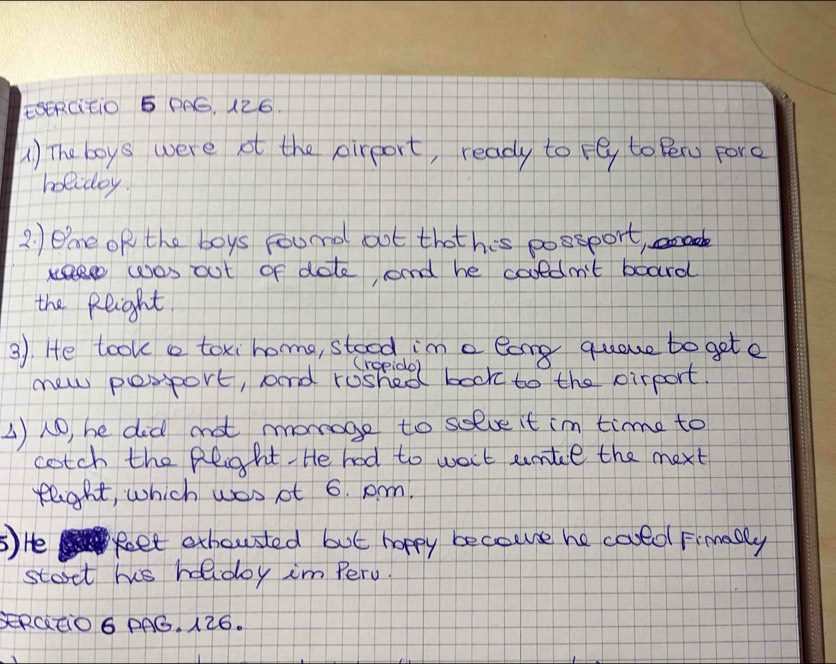 ESERCIZIO 5 PAG. 126.
1.) The boys were at the airport, ready to fly to Peru for a
holiday.
2.) One of the boys found out that his passport,
was out of date, and he couldn't board
the flight.
3). He took a taxi home, stood in a long queue to get a
(rapido)
new passport, and rushed back to the airport.
4) NO, he did not manage to solve it in time to
catch the flight. He had to wait until the next
flight, which was at 6. am.
5) He felt exhausted but happy because he could Finally
start his holiday in Peru.
SERCIZIO 6 PAG. 126.